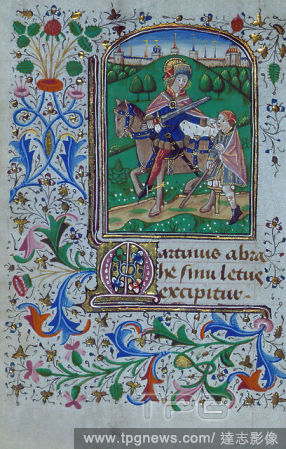 Martinus abra
he sinu letus
excipitur
TPG
www.tpgnews.com/ 達志影像